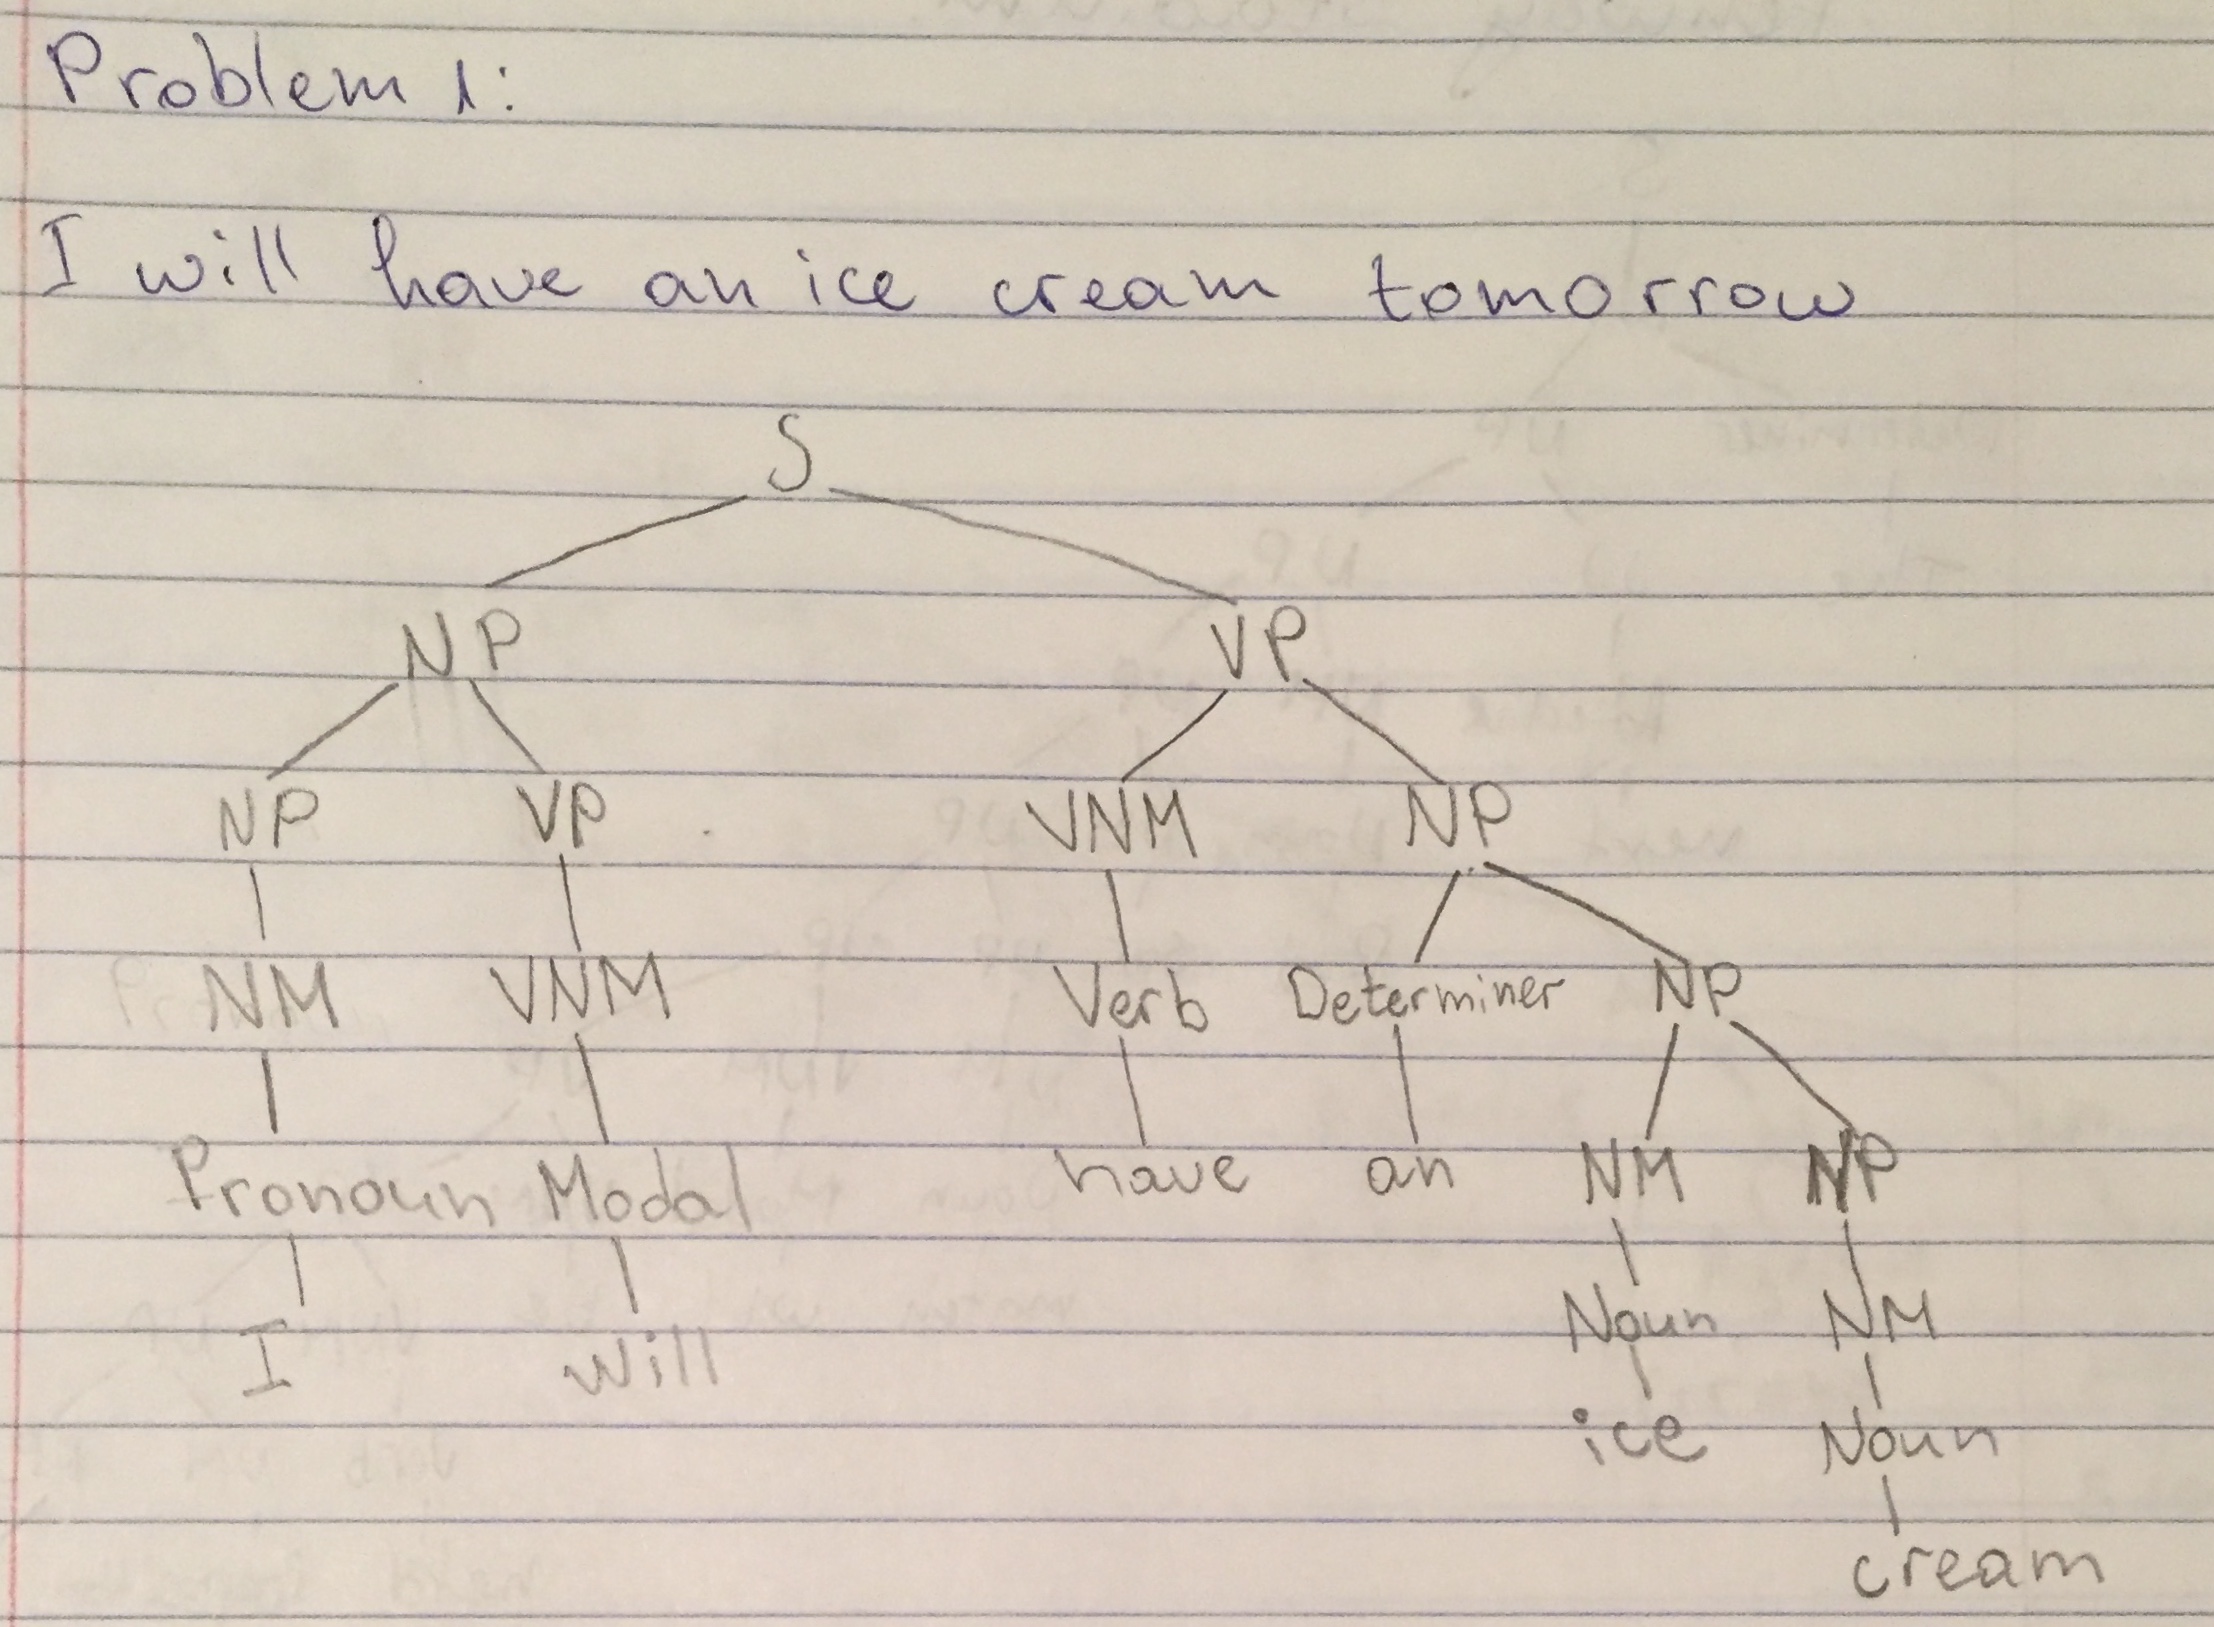 Problem 1:
I will have an ice cream tomorrow
S
NP VP
NP VP VNM NP
NM VNM Verb Determiner NP
Pronoun Modal have an NM NP
I will Noun NM
ice Noun
cream